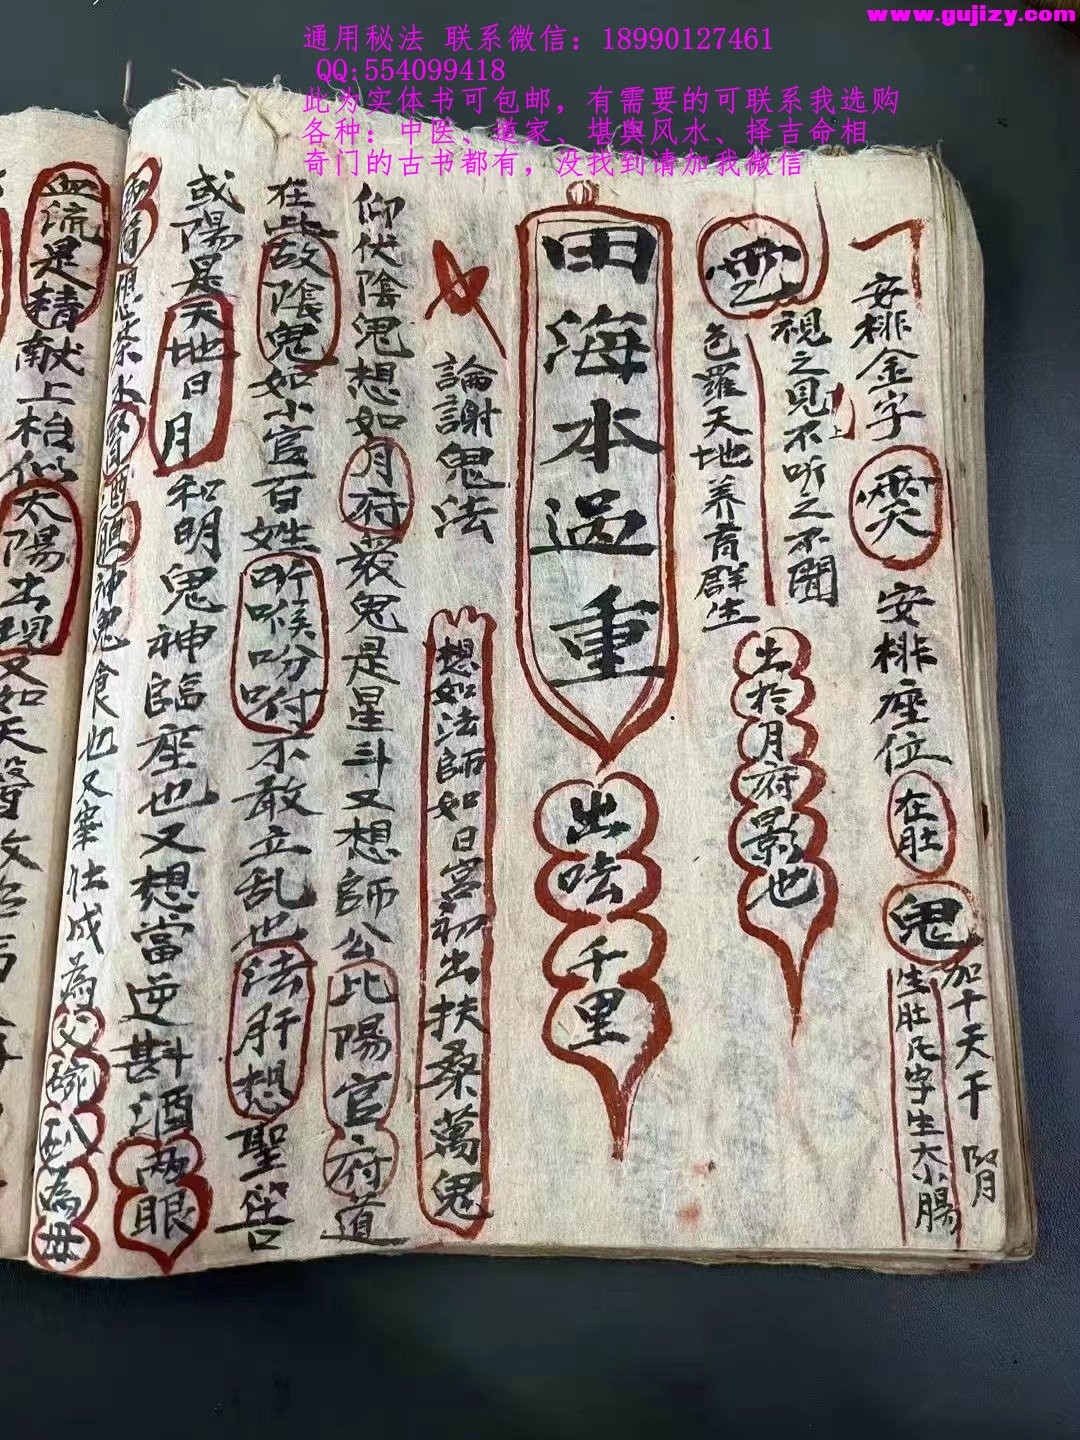 www.gujizy.com
通用秘法 联系微信：18990127461
QQ:554099418
此为实体书可包邮，有需要的可联系我选购
各种：中医、道家、堪舆风水、择吉命相
奇门的古书都有，没找到请加我微信
安排金字
安排座位
在肚
鬼
加十天干
腎
生肚凡字生大小腸
視之見不上听之不聞
包羅天地养育群生
出於月府影也
田海本過重
出唸千里
論謝鬼法
想如法師如日宮初出扶桑萬鬼
仰伏陰鬼想如月府衆鬼是星斗又想師公比陽官府道
在此故陰鬼如小官百姓听候吩咐不敢立乱也法肝想聖
或陽是天地日月和明鬼神臨座也又想當逆斟酒两眼
想茶水
神鬼食也又
成為父碗
為母
血流是精献上枱似太陽出現又如天醫